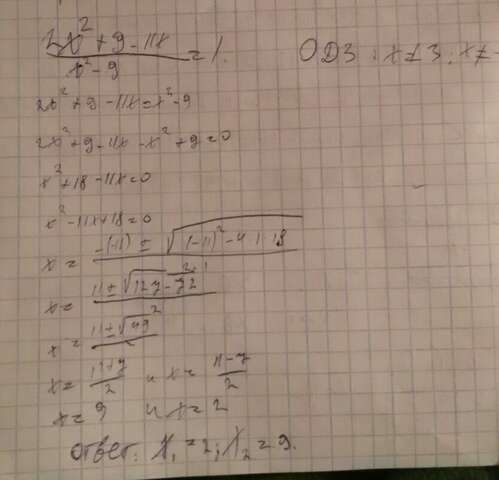 (2x² + 9 - 11x)/(x² - 9) = 1. ОДЗ : x ≠ 3 ; x ≠ -
2x² + 9 - 11x = x² - 9
2x² + 9 - 11x - x² + 9 = 0
x² + 18 - 11x = 0
x² - 11x + 18 = 0
x = (-(-11) ± √((-11)² - 4·1·18))/(2·1)
x = (11 ± √(121 - 72))/2
x = (11 ± √49)/2
x = (11 + 7)/2 и x = (11 - 7)/2
x = 9 и x = 2
ответ: x₁ = 2; x₂ = 9.